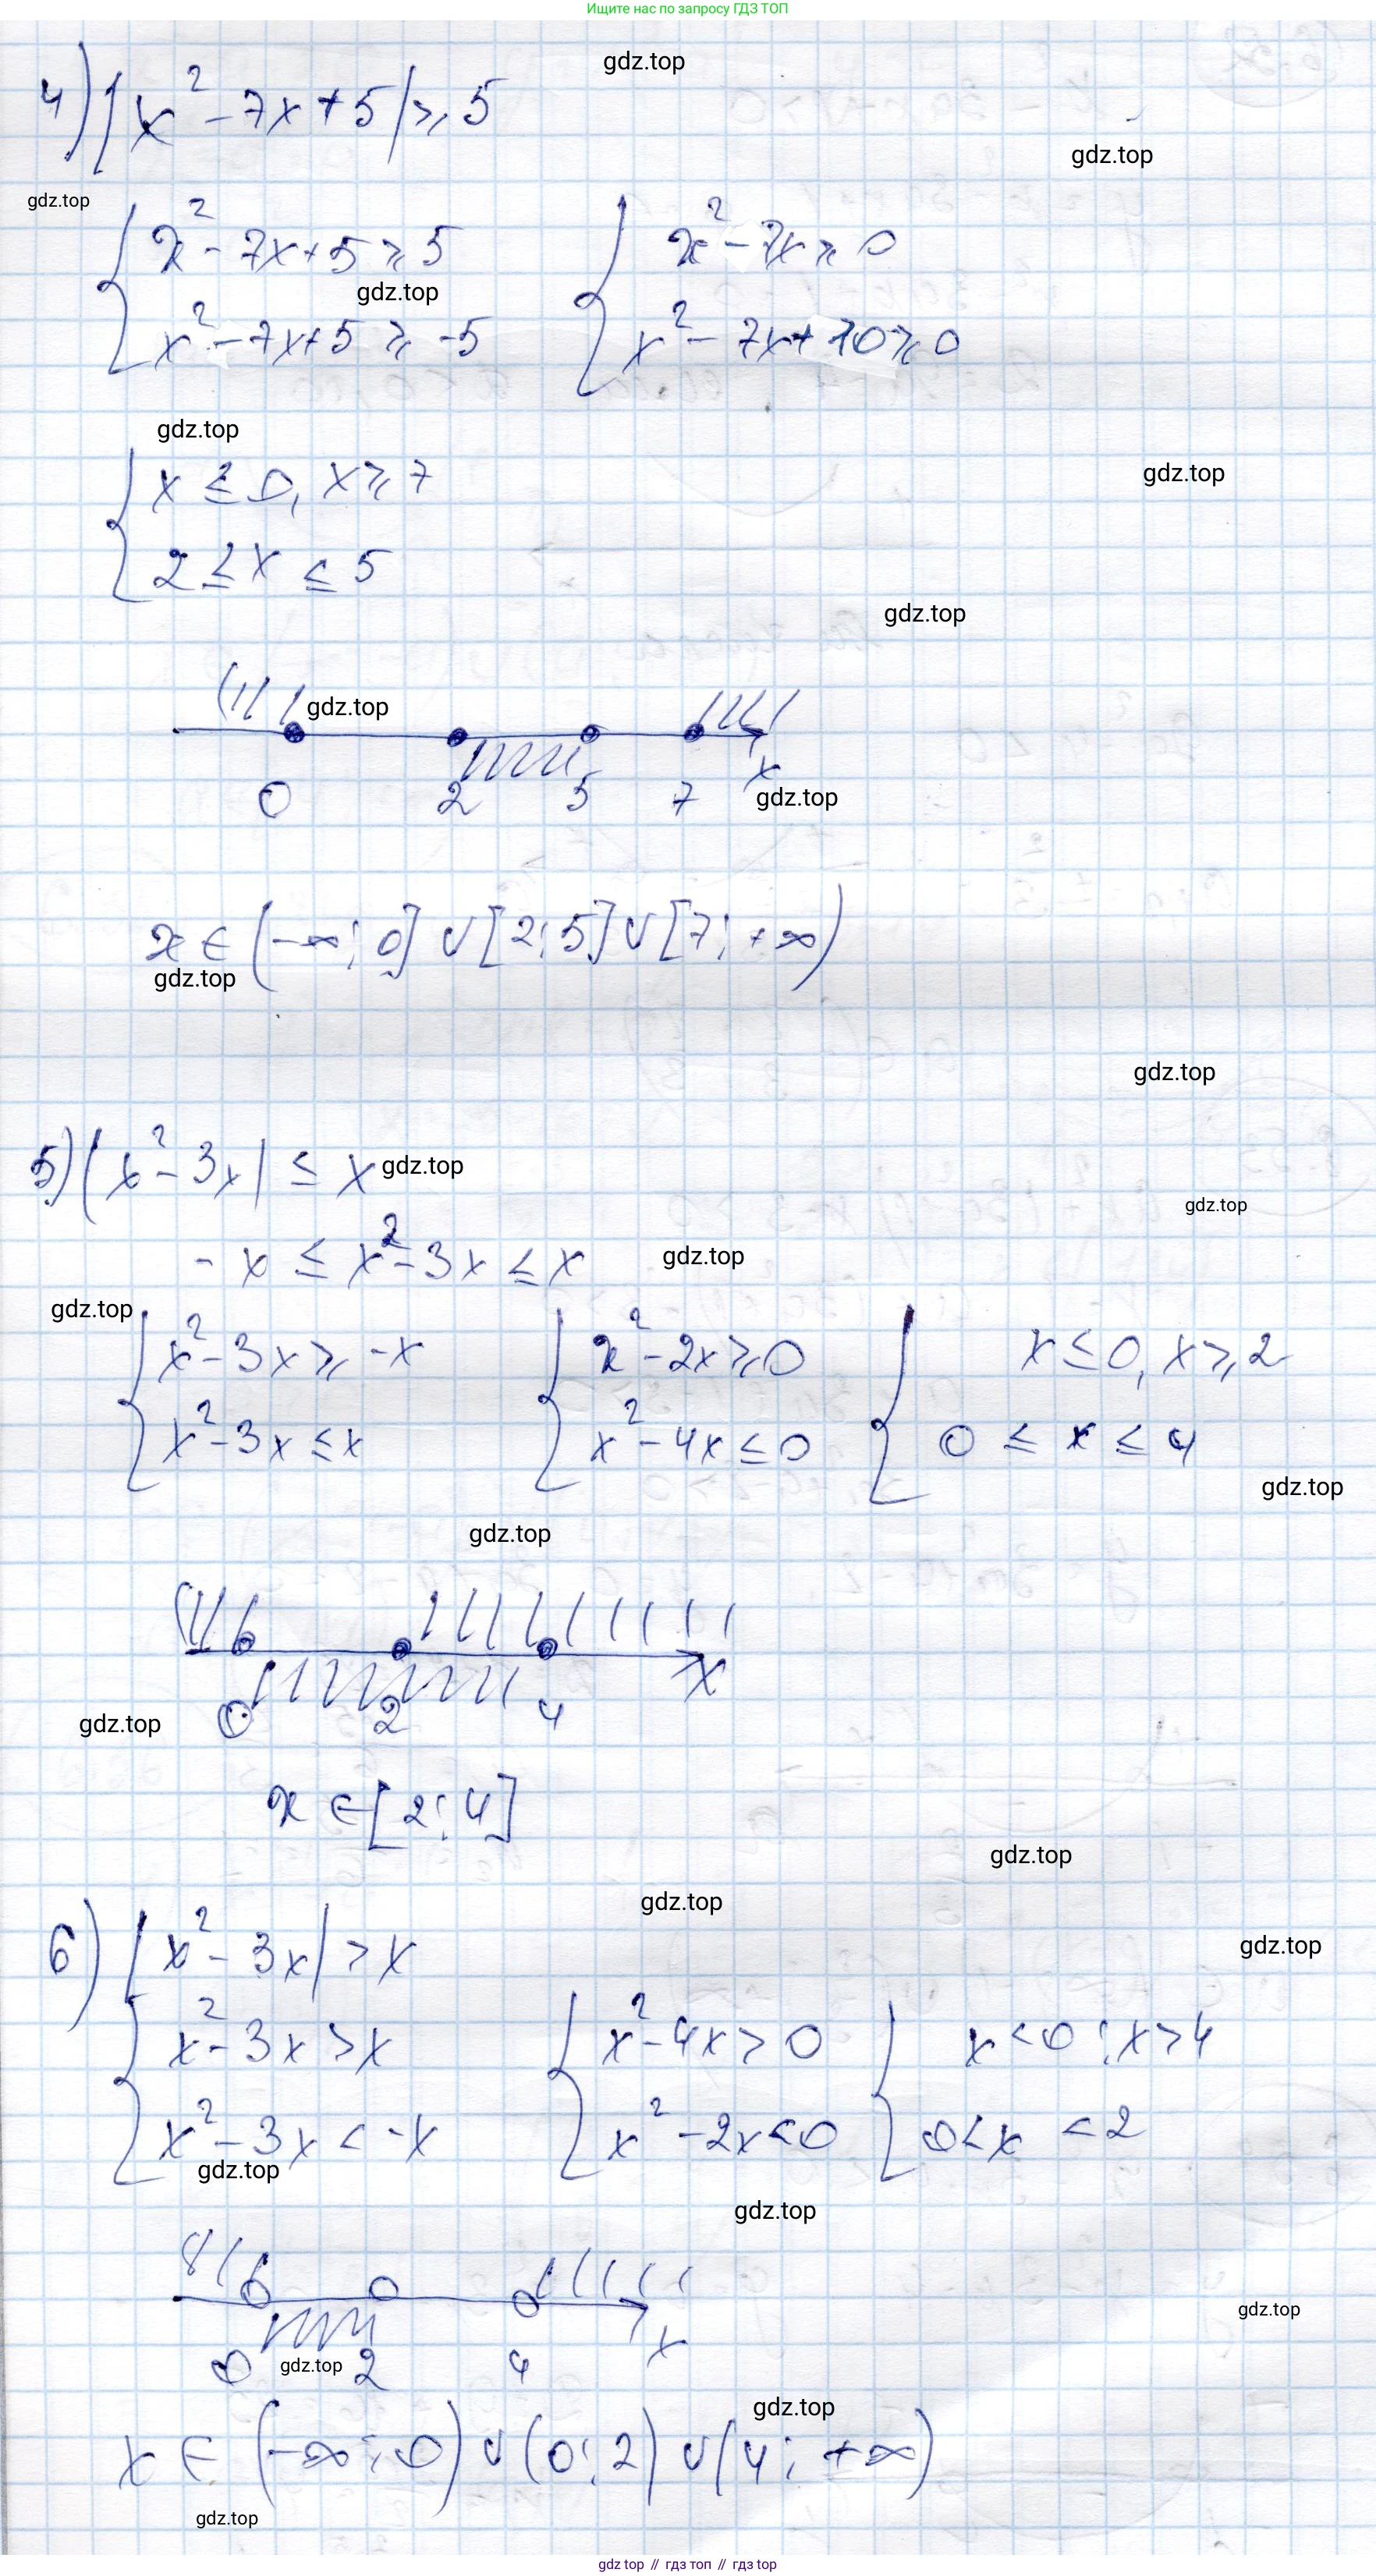 Ищите нас по запросу ГДЗ ТОП
gdz.top
4) |x² - 7x + 5| ⩾ 5
gdz.top
gdz.top
{ x² - 7x + 5 ⩾ 5 { x² - 7x ⩾ 0
gdz.top
x² - 7x + 5 ⩾ -5 x² - 7x + 10 ⩾ 0
gdz.top
{ x ≤ 0, x ⩾ 7
gdz.top
2 ≤ x ≤ 5
gdz.top
gdz.top
0 2 5 7 x
gdz.top
x ∈ (-∞; 0] ∪ [2; 5] ∪ [7; +∞)
gdz.top
gdz.top
5) |x² - 3x| ≤ x
gdz.top
gdz.top
- x ≤ x² - 3x ≤ x
gdz.top
gdz.top
{ x² - 3x ⩾ -x { x² - 2x ⩾ 0 { x ≤ 0, x ⩾ 2
x² - 3x ≤ x x² - 4x ≤ 0 0 ≤ x ≤ 4
gdz.top
gdz.top
0 2 4 x
gdz.top
x ∈ [2; 4]
gdz.top
gdz.top
6) |x² - 3x| > x
gdz.top
{ x² - 3x > x { x² - 4x > 0 { x < 0; x > 4
x² - 3x < -x x² - 2x < 0 0 < x < 2
gdz.top
gdz.top
gdz.top
0 2 4 x
gdz.top
gdz.top
x ∈ (-∞; 0) ∪ (0; 2) ∪ (4; +∞)
gdz.top
gdz top // гдз топ // гдз top